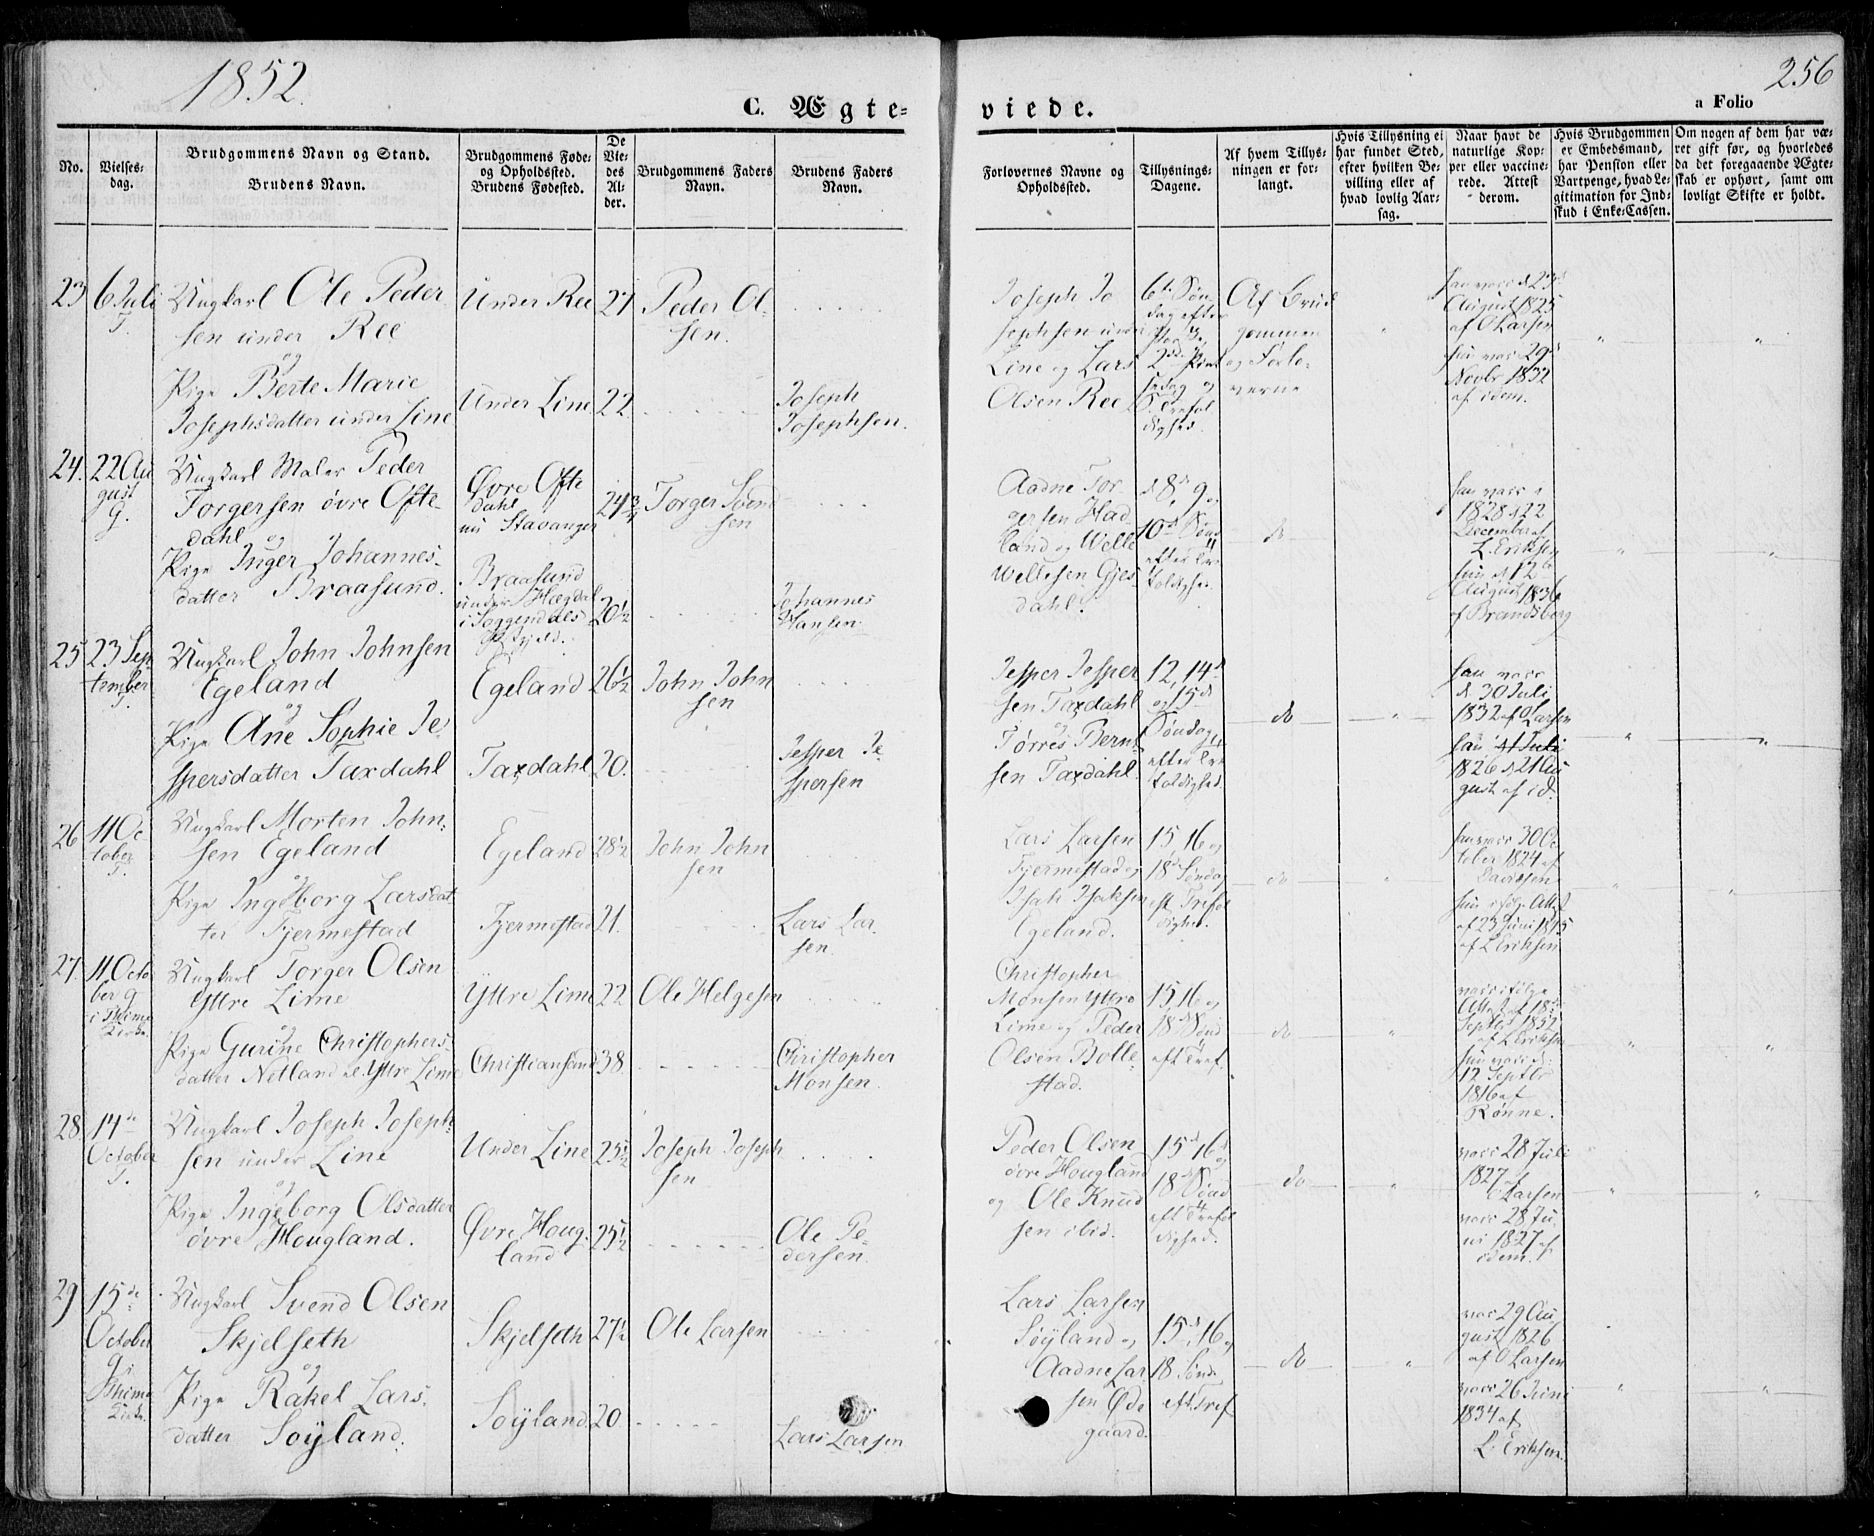 1852.
256
C. Ægte-
viede.
a Folio
No.
Vielses-
dag.
Brudgommens Navn og Stand.
Brudens Navn.
Brudgommens Føde-
og Opholdssted.
Brudens Fødested.
De
Vie-
des
Al-
der.
Brudgommens Faders
Navn.
Brudens Faders
Navn.
Forlovernes Navne og
Opholdssted.
Tillysnings-
Dagene.
Af hvem Tillys-
ningen er for-
langt.
Hvis Tillysning ei
har fundet Sted,
efter hvilken Be-
villing eller af
hvad lovlig Aar-
sag.
Naar havt de
naturlige Kop-
per eller vaccine-
rede. Attest
derom.
Hvis Brudgommen
er Embedsmand,
har Pension eller
Vartpenge, hvad Le-
gitimation for Ind-
skud i Enke-Cassen.
Om nogen af dem har væ-
ret gift før, og hvorledes
da det foregaaende Ægte-
skab er ophørt, samt om
lovligt Skifte er holdt.
23
6 Juli
T.
Ungkarl Ole Peder
sen under Ree
og
Pige Berte Marie
Josephsdatter under Line
Under Ree
Under Line
27
22
Peder Ol-
sen.
Joseph
Josephsen.
Joseph Jo
sephsen under
Line og Lars
Olsen Ree
6te Søn-
dag efter
2den Pint
sedag og
S. Trefol
dighed.
Af Brud
gommen
og Forlo-
verne
han vacc d 23de
August 1825
af O Larsen
hun vacc 29de
Novbr 1832
af idem.
24.
22 Au
gust
g.
Ungkarl Maler Peder
Torgersen övre Ofte-
dahl og
Pige Inger Johannes-
datter Braasund.
Øvre Ofte
dahl
nu Stavanger
Braasund
under Hægdal
i Soggendals
Pgjeld.
24 3/4
20 1/2
Torger Svend
sen
Johannes
Hansen
Aadne Tor-
gersen Had-
land og Welle
Wellesen Gjes
dahl.
d 8de, 9 og
10de Sønd
efter Tre
foldighed.
do
han vacc
1828 d 22
December af
L. Eriksen
hun d 12te
August 1836
af Brandsberg
25
23 Sep
tember
T.
Ungkarl John Johnsen
Egeland
og
Pige Ane Sophie Je-
spersdatter Taxdahl
Egeland
Taxdahl
26 1/2
20.
John John
sen
Jesper Je
spersen
Jesper Jesper
sen Taxdahl
og
Tørres Bernt
sen Taxdahl.
12, 14de
og 15de
Søndag
efter Tre
foldighed.
do
han vacc
d 30 Juli
1832 af O Larsen
Juli
1826 d 21 Au
gust af id.
26
11 Oc
tober
T.
Ungkarl Morten John-
sen Egeland
og
Pige Ingeborg Larsdat
ter Fjermestad
Egeland
Fjermestad
28 1/2
21.
John John
sen
Lars Lar-
sen.
Lars Larsen
Fjermestad og
Isak Isaksen
Egeland.
15, 16 og
18de Søndag
eft Trefol
dighed.
do
han vacc 30 Oc
tober 1824 af
Davidsen
hun ifølge Attest
af 23 Juni 1845
af L Eriksen
27.
11 Octo
ber g
i Thime
Kirke.
Ungkarl Torger Olsen
Yttre Lime
og
Pige Gurine Christophers
datter Netland e. Yttre Lime
Yttre Lime
Christiansand
22
38
Ole Helgesen
Christopher
Monsen.
Christopher
Monsen Yttre
Lime og Peder
Olsen Bolle-
stad.
15 16 og
18de Sønd
eft Tref
do
vacc ifølge
Attest af 18de
Septbr 1852
af L Eriksen
hun vacc d.
12 Septbr
1816 af
Rönne.
28.
14de
October
T.
Ungkarl Joseph Joseph-
sen under Line
og
Pige Ingeborg Olsdatter
övre Hougland.
Under Line
Øvre Houg-
land
25 1/2
25 1/2
Joseph Joseph
sen
Ole Pe-
dersen.
Peder Olsen
övre Hougland
og Ole Knud
sen ibid.
15de 16de
og
18de Sønd
eft Trefol
dighed.
do
vacc 28 Juli
1827 af
O Larsen
vacc 28 Ju
ni 1827 af
idem.
29
15de
October
g i
Thime
Kirke.
Ungkarl Svend Olsen
Skjelseth
og
Pige Rakel Lars-
datter Söyland.
Skjelseth
Söyland
27 1/2
20
Ole Larsen
Lars Larsen
Lars Larsen
Söyland og
Aadne Lar
sen Öde
gaard.
15de 16 og
18 Sønd
eft Tref
do
vacc 29 Au
gust 1826
af O Larsen
vacc 26 Juni
1834 af
L. Eriksen.